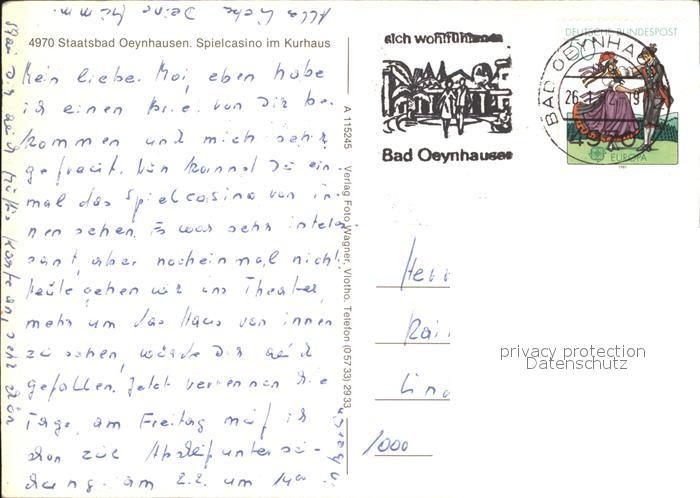 4970 Staatsbad Oeynhausen. Spielcasino im Kurhaus
Mein liebe. Kai, eben habe
ich einen Brief von Dir be-
kommen und mich sehr
gefreut. Nun kannst Du ein-
mal das Spielcasino von in-
nen sehen. Es war sehr interes-
sant, aber noch einmal nicht.
Heute gehen wir ins Theater,
mehr um das Haus von innen
zu sehen, würde Dir auch
gefallen. Jetzt verrennen die
Tage, am Freitag muß ich
schon zur Abschlußuntersu-
chung. am 2.2. um
Alles Liebe Deine
Karte an, sehr schön
A 115245 Verlag Foto Wagner, Vlotho. Telefon (05733) 2933
sich wohlfühlen
Bad Oeynhausen
DEUTSCHE BUNDESPOST
BAD OEYNHAUSEN
26.1.
4970
EUROPA
1981
Herr
1000
privacy protection
Datenschutz